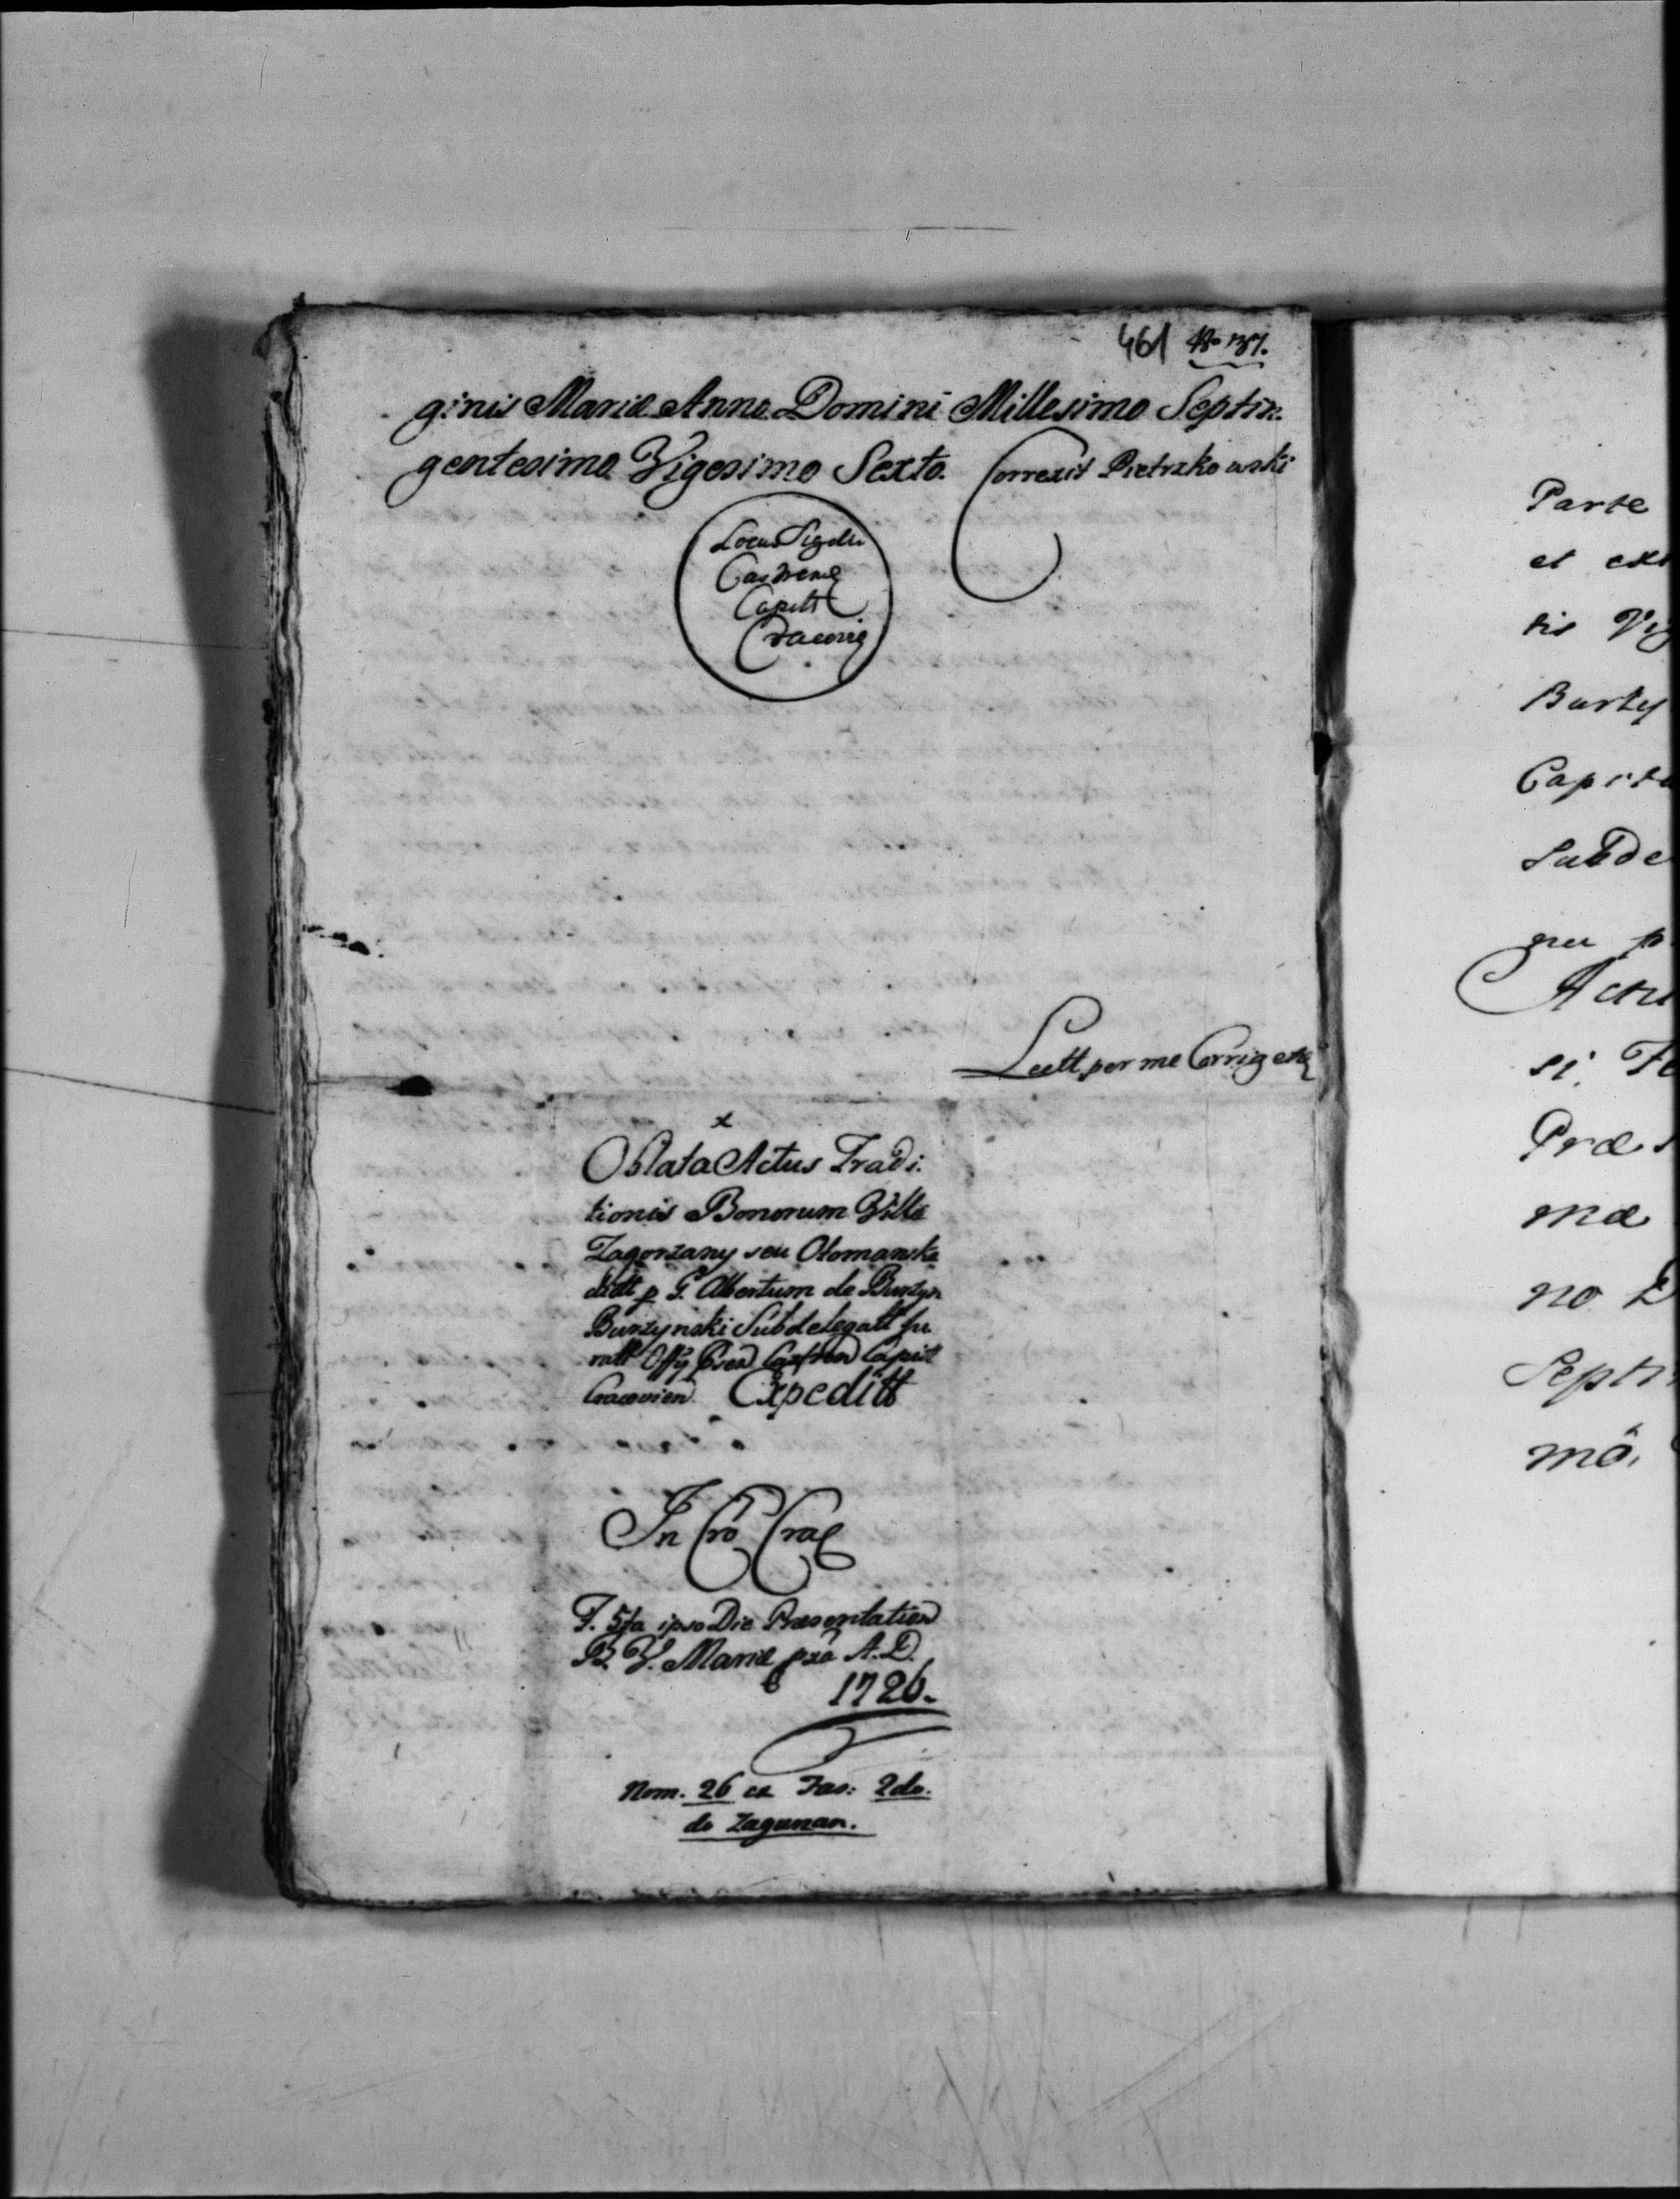 461 No 137.
ginis Mariæ Anno Domini Millesimo Septin.
gentesimo Vigesimo Sexto. Correxit Pietrzkowski
Locus Sigilli
Castrens
Capitt
Cracovie
Lectt per me Corrigente
x
Oblata Actus Tradi.
tionis Bonorum Villæ
Zagorzany seu Otomanska
dictt p G. Albertum de Burzyn
Burzynski Subdelegatt Ju.
ratt Offÿ Præs Castren Capitt
Cracovien. Expeditt
In Cro Crac
F. 5ta ipso Die Præsentation
B. V. Mariæ pxa A. D.
1726.
Nom. 26 ex Fas: 2do.
de Zagunan.
Parte
et ext
tis Vig
Burky
Capit
Subde
nu p
Actu
si. Fe
Præs
mæ
no D
Septi
mô.